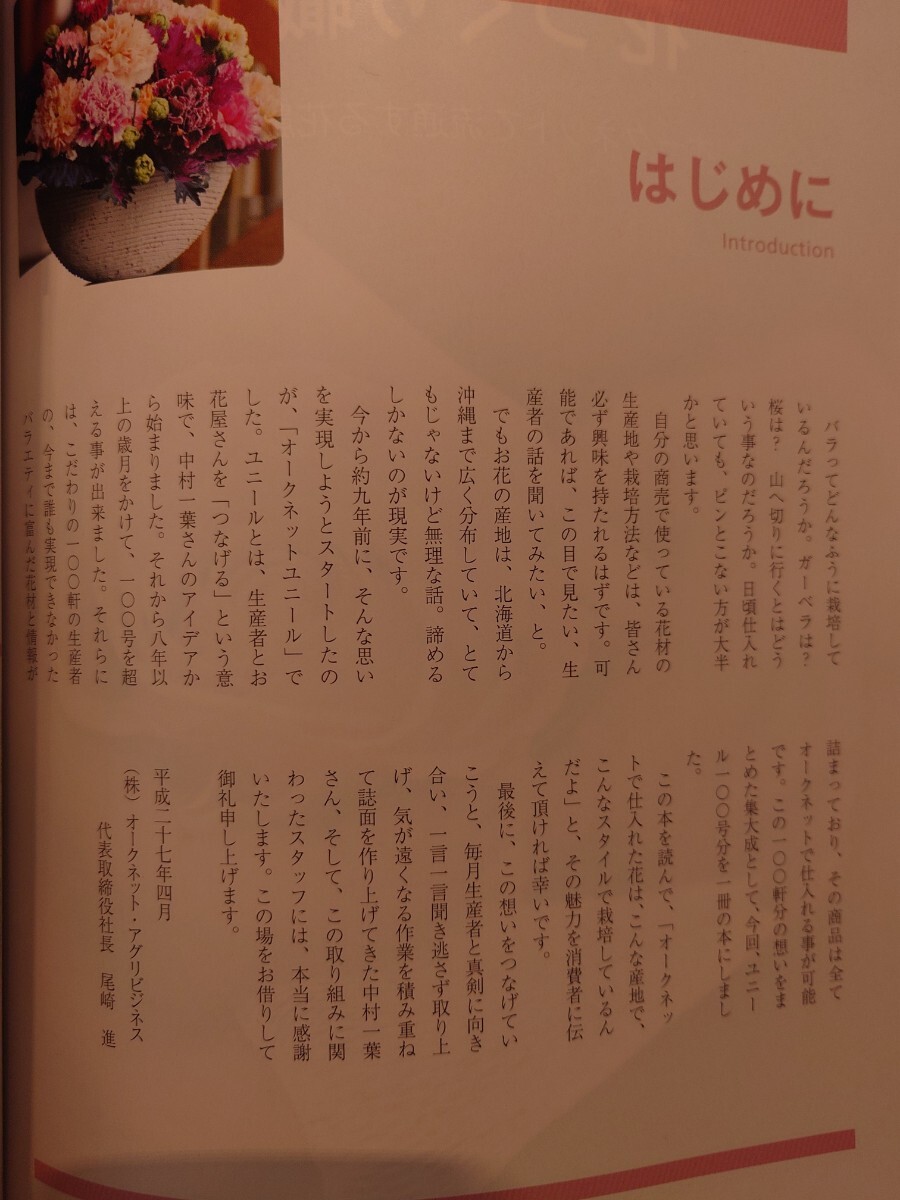 はじめに
Introduction
バラってどんなふうに栽培して
いるんだろうか。ガーベラは？
桜は？　山へ切りに行くとはどう
いう事なのだろうか。日頃仕入れ
ていても、ピンとこない方が大半
かと思います。
自分の商売で使っている花材の
生産地や栽培方法などは、皆さん
必ず興味を持たれるはずです。可
能であれば、この目で見たい、生
産者の話を聞いてみたい、と。
でもお花の産地は、北海道から
沖縄まで広く分布していて、とて
もじゃないけど無理な話。諦める
しかないのが現実です。
今から約九年前に、そんな思い
を実現しようとスタートしたの
が、「オークネットユニール」で
した。ユニールとは、生産者とお
花屋さんを「つなげる」という意
味で、中村一葉さんのアイデアか
ら始まりました。それから八年以
上の歳月をかけて、一〇〇号を超
える事が出来ました。それらに
は、こだわりの一〇〇軒の生産者
の、今まで誰も実現できなかった
バラエティに富んだ花材と情報が
詰まっており、その商品は全て
オークネットで仕入れる事が可能
です。この一〇〇軒分の想いをま
とめた集大成として、今回、ユニー
ル一〇〇号分を一冊の本にしまし
た。
この本を読んで、「オークネッ
トで仕入れた花は、こんな産地で、
こんなスタイルで栽培しているん
だよ」と、その魅力を消費者に伝
えて頂ければ幸いです。
最後に、この想いをつなげてい
こうと、毎月生産者と真剣に向き
合い、一言一言聞き逃さず取り上
げ、気が遠くなる作業を積み重ね
て誌面を作り上げてきた中村一葉
さん、そして、この取り組みに関
わったスタッフには、本当に感謝
いたします。この場をお借りして
御礼申し上げます。
平成二十七年四月
（株）オークネット・アグリビジネス
代表取締役社長　尾崎　進